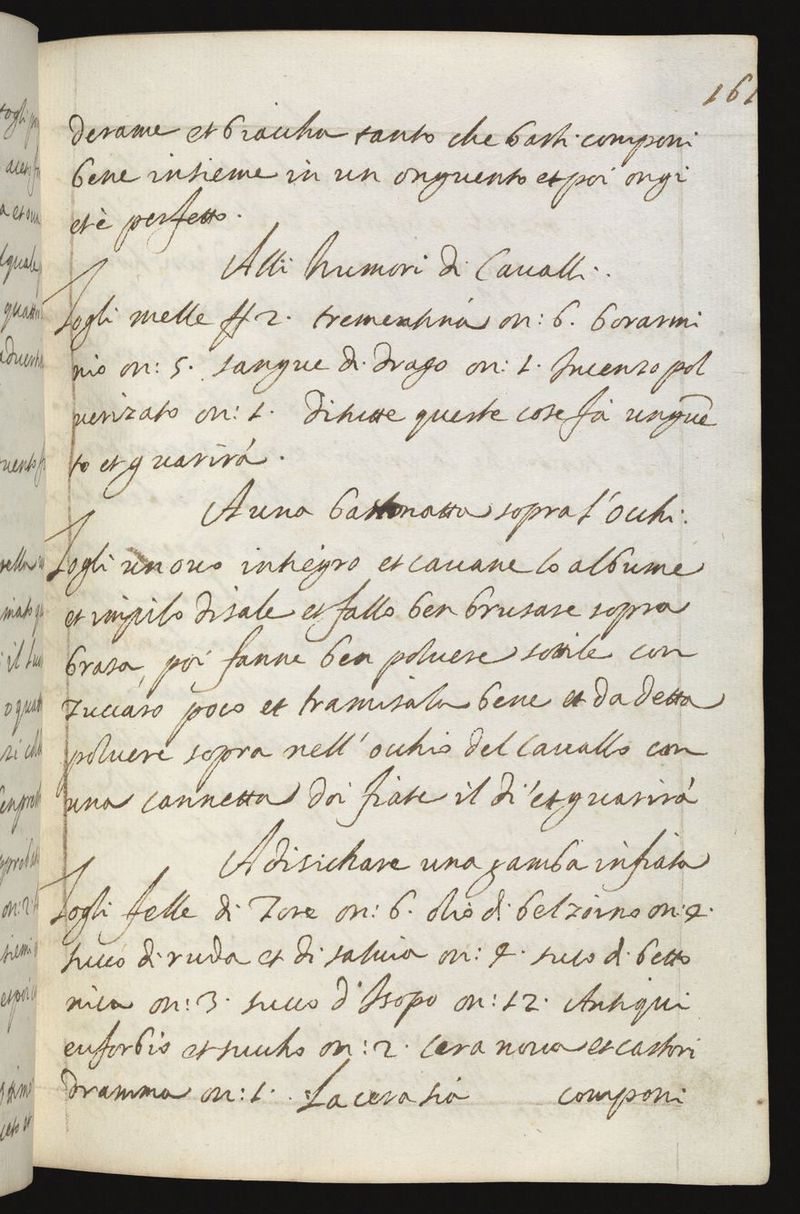 161
derame et biaccha tanto che basti componi
bene insieme in un onguento et poi ongi
et è perfetto.
Alli humori di Cavalli.
Togli melle ℔ 2. trementina on: 6. borarmi
nio on: 5. sangue di drago on: 1. Incenso pol
verizato on: 1. di tutte queste cose fa unguē
to et guarirà.
A una bastonatta sopra l'occhi.
Togli un ovo intiegro et cavane lo albume
et impilo di sale et fallo ben brusare sopra
brasa, poi fanne ben polvere sottile con
zuccaro poco et tramisala bene et da detta
polvere sopra nell'occhio del Cavallo con
una cannetta doi fiate il di et guarirà
A disichare una gamba infiata
Togli felle di Tore on: 6. olio di belzoino on: 4.
succo di ruda et di salvia on: 4. suco di betto
nica on: 3. succo d'Isopo on: 12. Antiqui
euforbio et succho on: 2. Cera nova et castori
dramma on: 1. La cera sia componi